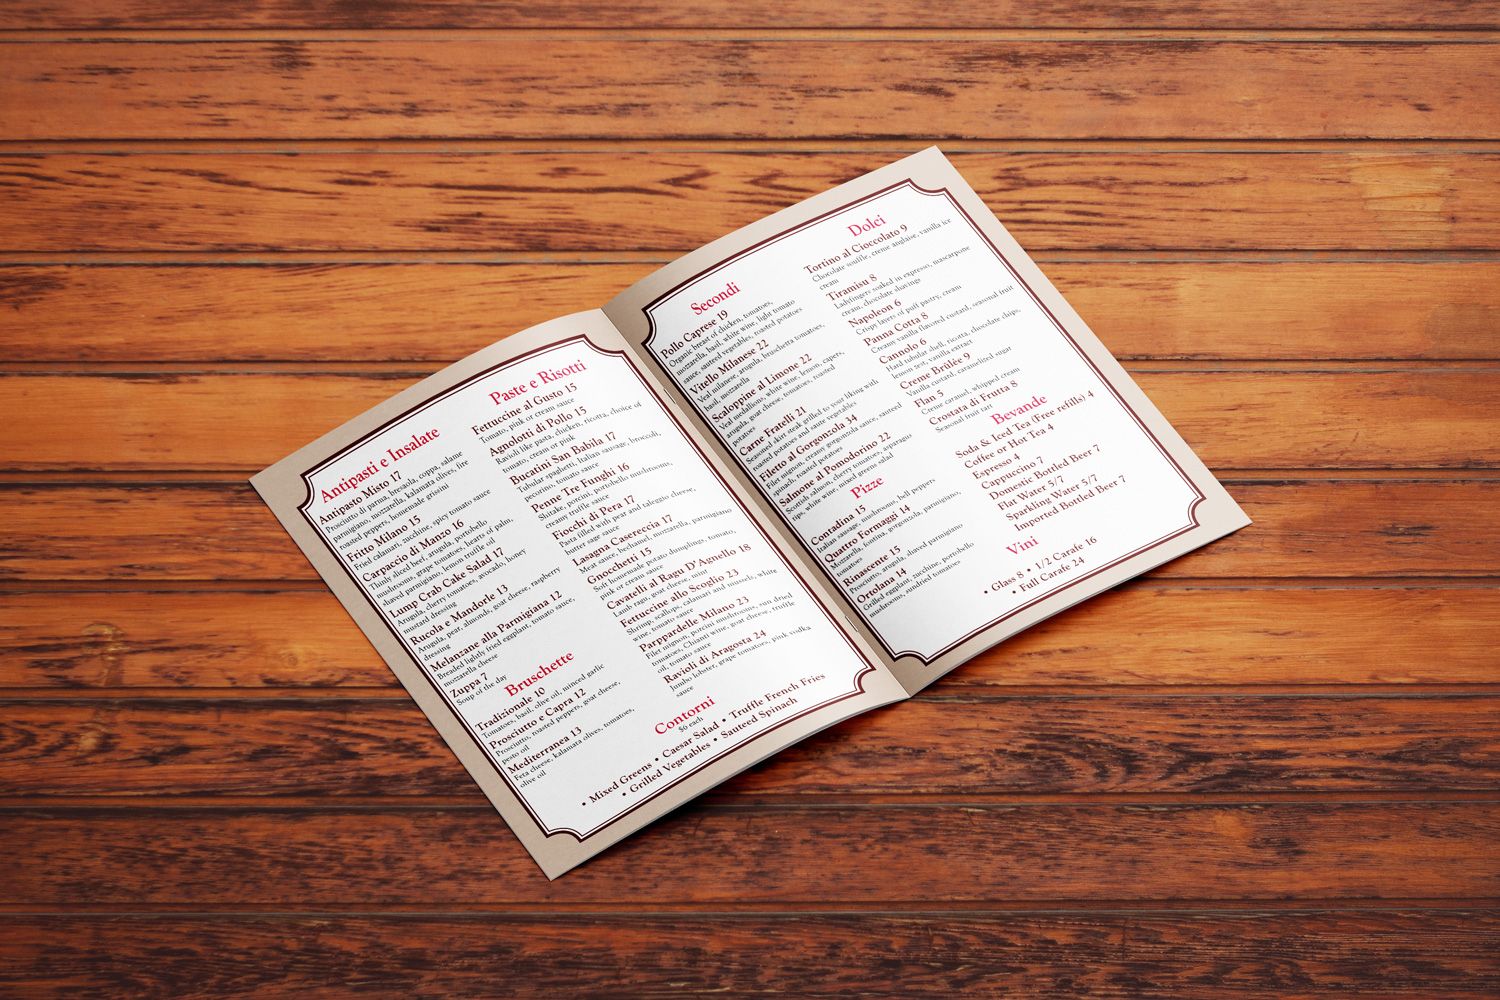 Antipasti e Insalate
Antipasto Misto 17
Prosciuto di parma, bresaola, coppa, salame
parmigiano, mozzarella, kalamata olives, fire
roasted peppers, homemade grissini
Fritto Milano 15
Fried calamari, zucchine, spicy tomato sauce
Carpaccio di Manzo 16
Thinly sliced beef, arugula, portobello
mushrooms, grape tomatoes, hearts of palm,
shaved parmigiano, lemon truffle oil
Lump Crab Cake Salad 17
Arugula, cherry tomatoes, avocado, honey
mustard dressing
Rucola e Mandorle 13
Arugula, pear, almonds, goat cheese, raspberry
dressing
Melanzane alla Parmigiana 12
Breaded lightly fried eggplant, tomato sauce,
mozzarella cheese
Zuppa 7
Soup of the day
Bruschette
Tradizionale 10
Tomatoes, basil, olive oil, minced garlic
Prosciutto e Capra 12
Prosciutto, roasted peppers, goat cheese,
pesto oil
Mediterranea 13
Feta cheese, kalamata olives, tomatoes,
olive oil
Paste e Risotti
Fettuccine al Gusto 15
Tomato, pink or cream sauce
Agnolotti di Pollo 15
Ravioli like pasta, chicken, ricotta, choice of
tomato, cream or pink
Bucatini San Babila 17
Tubular spaghetti, Italian sausage, broccoli,
pecorino, tomato sauce
Penne Tre Funghi 16
Shitake, porcini, portobello mushrooms,
creamy truffle sauce
Fiocchi di Pera 17
Pasta filled with pear and taleggio cheese,
butter sage sauce
Lasagna Casereccia 17
Meat sauce, bechamel, mozzarella, parmigiano
Gnocchetti 15
Soft homemade potato dumplings, tomato,
pink or cream sauce
Cavatelli al Ragu D'Agnello 18
Lamb ragu, goat cheese, mint
Fettuccine allo Scoglio 23
Shrimp, scallops, calamari and mussels, white
wine, tomato sauce
Parppardelle Milano 23
Filet mignon, porcini mushrooms, sun dried
tomatoes, Chianti wine, goat cheese, truffle
oil, tomato sauce
Ravioli di Aragosta 24
Jumbo lobster, grape tomatoes, pink vodka
sauce
Contorni
$9 each
• Mixed Greens • Caesar Salad • Truffle French Fries
• Grilled Vegetables • Sauteed Spinach
Secondi
Pollo Caprese 19
Organic breast of chicken, tomatoes,
mozzarella, basil, white wine, light tomato
sauce, sauteed vegetables, roasted potatoes
Vitello Milanese 22
Veal milanese, arugula, bruschetta tomatoes,
basil, mozzarella
Scaloppine al Limone 22
Veal medallions, white wine, lemon, capers,
arugula, goat cheese, tomatoes, roasted
potatoes
Carne Fratelli 21
Seasoned skirt steak grilled to your liking with
roasted potatoes and saute vegetables
Filetto al Gorgonzola 34
Filet mignon, creamy gorgonzola sauce, sauteed
spinach, roasted potatoes
Salmone al Pomodorino 22
Scottish salmon, cherry tomatoes, asparagus
tips, white wine, mixed greens salad
Pizze
Contadina 15
Italian sausage, mushrooms, bell peppers
Quattro Formaggi 14
Mozzarella, fontina, gorgonzola, parmigiano,
tomatoes
Rinascente 15
Prosciutto, arugula, shaved parmigiano
Ortolana 14
Grilled eggplant, zucchine, portobello
mushrooms, sundried tomatoes
Dolci
Tortino al Cioccolato 9
Chocolate souffle, creme anglaise, vanilla ice
cream
Tiramisu 8
Ladyfingers soaked in espresso, mascarpone
cream, chocolate shavings
Napoleon 6
Crispy layers of puff pastry, cream
Panna Cotta 8
Creamy vanilla flavored custard, seasonal fruit
Cannolo 6
Hard tubular shell, ricotta, chocolate chips,
lemon zest, vanilla extract
Creme Brûlée 9
Vanilla custard, caramelized sugar
Flan 5
Creme caramel, whipped cream
Crostata di Frutta 8
Seasonal fruit tart
Bevande
Soda & Iced Tea (Free refills) 4
Coffee or Hot Tea 4
Espresso 4
Cappuccino 7
Domestic Bottled Beer 7
Flat Water 5/7
Sparkling Water 5/7
Imported Bottled Beer 7
Vini
• Glass 8 • 1/2 Carafe 16
• Full Carafe 24